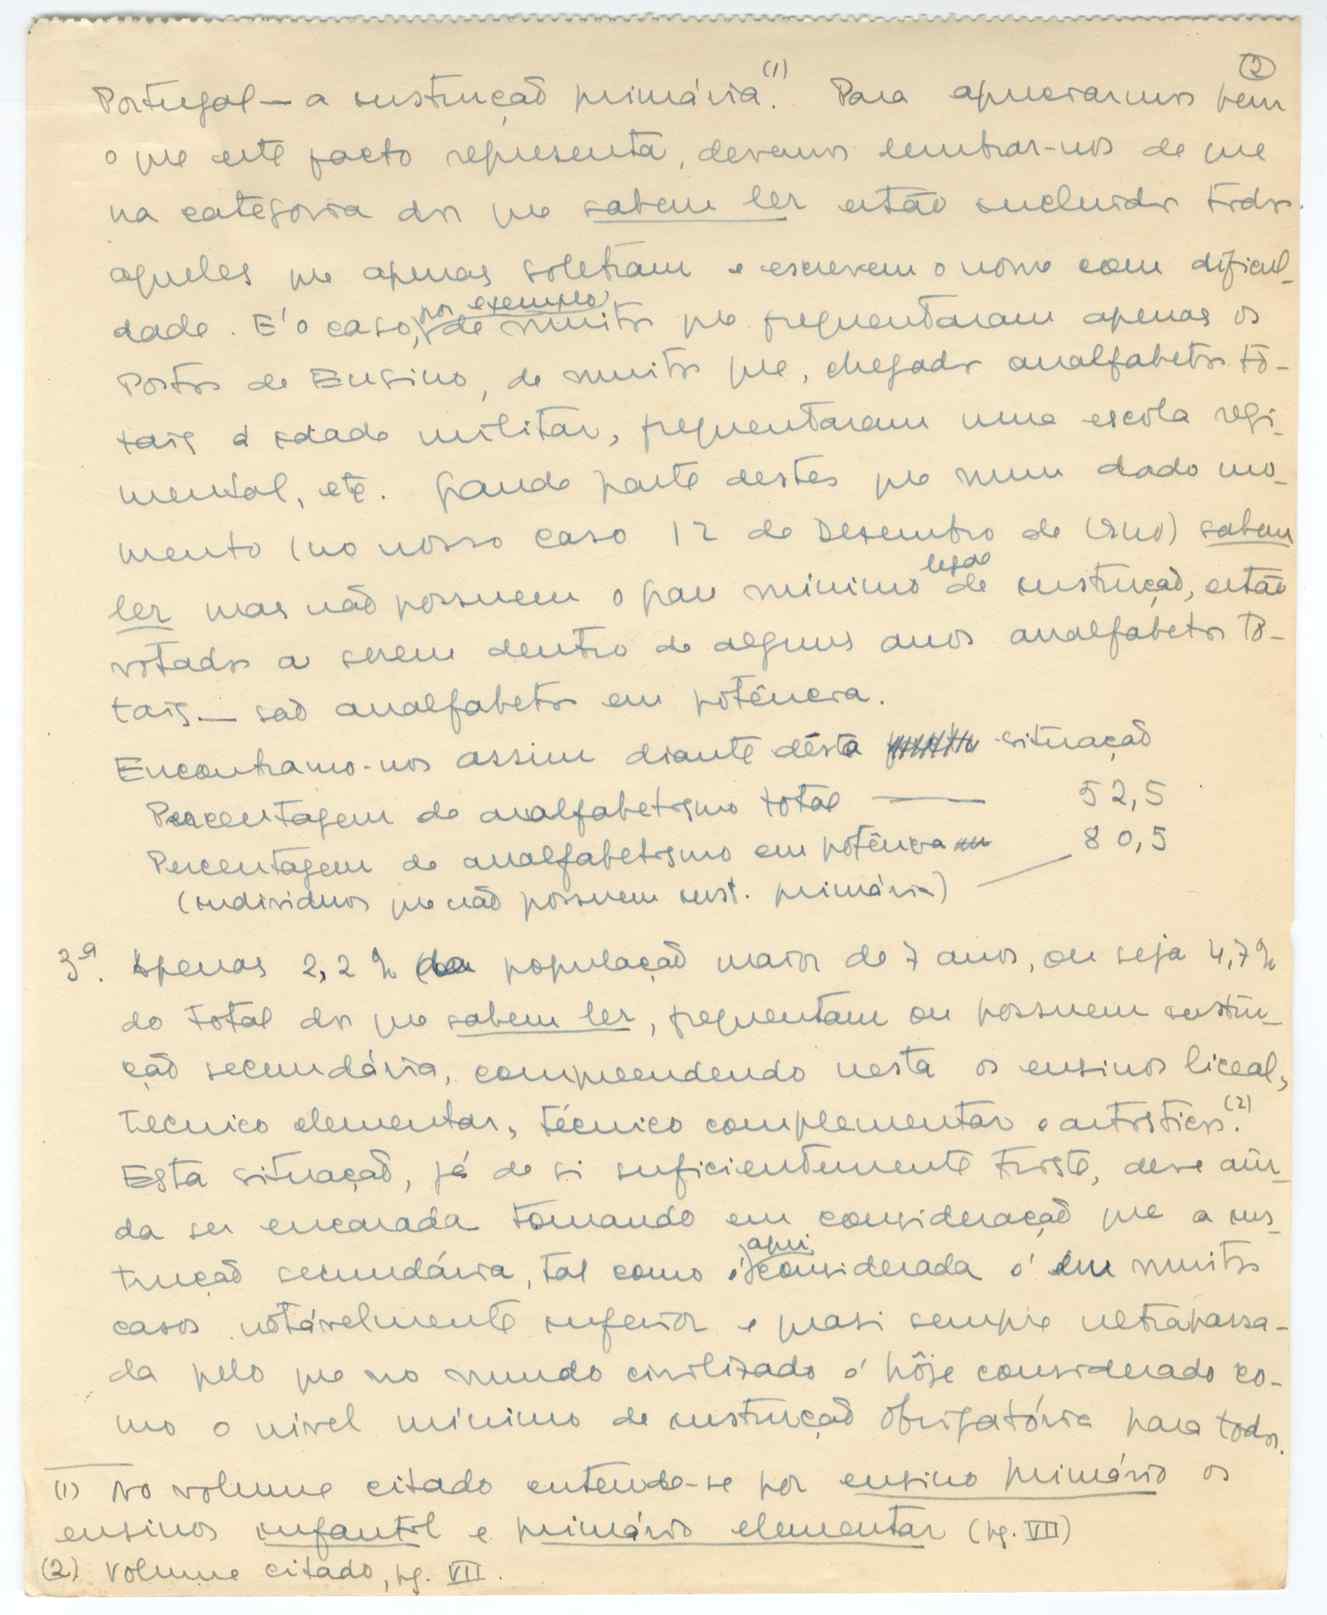 (2)
Portugal — a instrução primária.(1) Para apreciarmos bem
o que este facto representa, devemos lembrar-nos de que
na categoria dos que sabem ler estão incluidos todos
aqueles que apenas soletram e escrevem o nome com dificul-
dade. E' o caso, por exemplo, de muitos que frequentaram apenas os
Postos de Ensino, de muitos que, chegados analfabetos to-
tais á idade militar, frequentaram uma escola regi-
mental, etc. Grande parte destes que num dado mo-
mento (no nosso caso 12 de Dezembro de 1940) sabem
ler mas não possuem o grau minimo legal de instrução, estão
votados a serem dentro de alguns anos analfabetos to-
tais — são analfabetos em potência.
Encontramo-nos assim diante désta situação
Percentagem de analfabetismo total — 52,5
Percentagem de analfabetismo em potência — 80,5
(individuos que não possuem inst. primária)
3ª. Apenas 2,2% da população maior de 7 anos, ou seja 4,7%
do total dos que sabem ler, frequentam ou possuem instru-
ção secundária, compreendendo nesta os ensinos liceal,
técnico elementar, técnico complementar e artisticos.(2)
Esta situação, já de si suficientemente triste, deve ain-
da ser encarada tomando em consideração que a ins-
trução secundária, tal como é aqui considerada é em muitos
casos notávelmente inferior e quasi sempre ultrapassa-
da pelo que no mundo civilizado é hôje considerado co-
mo o nivel minimo de instrução obrigatória para todos.
(1) No volume citado entende-se por ensino primário os
ensinos infantil e primário elementar (pg. VII)
(2) Volume citado, pg. VII.